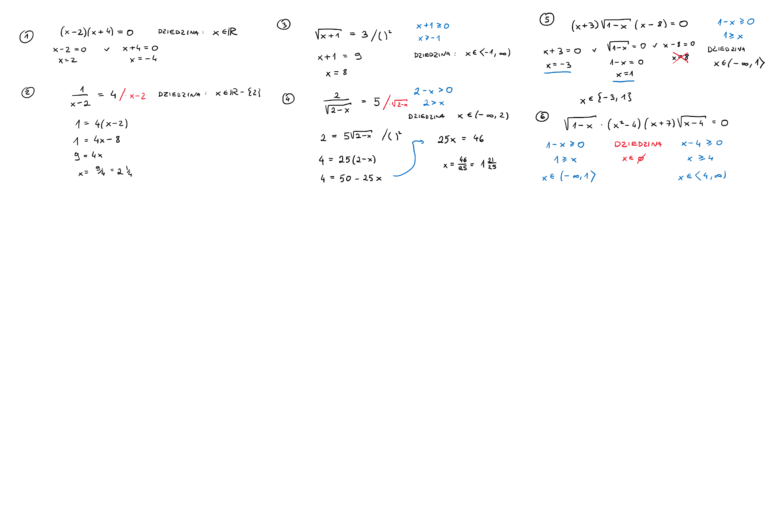 ① (x-2)(x+4) = 0 DZIEDZINA: x∈ℝ
x-2=0 ∨ x+4=0
x=2 x=-4
② 1/(x-2) = 4 / x-2 DZIEDZINA: x∈ℝ-{2}
1 = 4(x-2)
1 = 4x-8
9 = 4x
x = 9/4 = 2 1/4
③ √(x+1) = 3 /( )² x+1≥0
x≥-1
x+1 = 9 DZIEDZINA: x∈<-1,∞)
x = 8
④ 2/√(2-x) = 5 /·√(2-x) 2-x>0
2>x
DZIEDZINA x∈(-∞,2)
2 = 5√(2-x) /( )²
4 = 25(2-x)
4 = 50-25x
25x = 46
x = 46/25 = 1 21/25
⑤ (x+3)√(1-x) (x-8)=0 1-x≥0
1≥x
x+3=0 ∨ √(1-x)=0 ∨ x-8=0 DZIEDZINA
x=-3 1-x=0 x=8 x∈(-∞,1>
x=1
x∈{-3,1}
⑥ √(1-x) · (x²-4)(x+7)√(x-4) = 0
1-x≥0 DZIEDZINA x-4≥0
1≥x x∈∅ x≥4
x∈(-∞,1> x∈<4,∞)